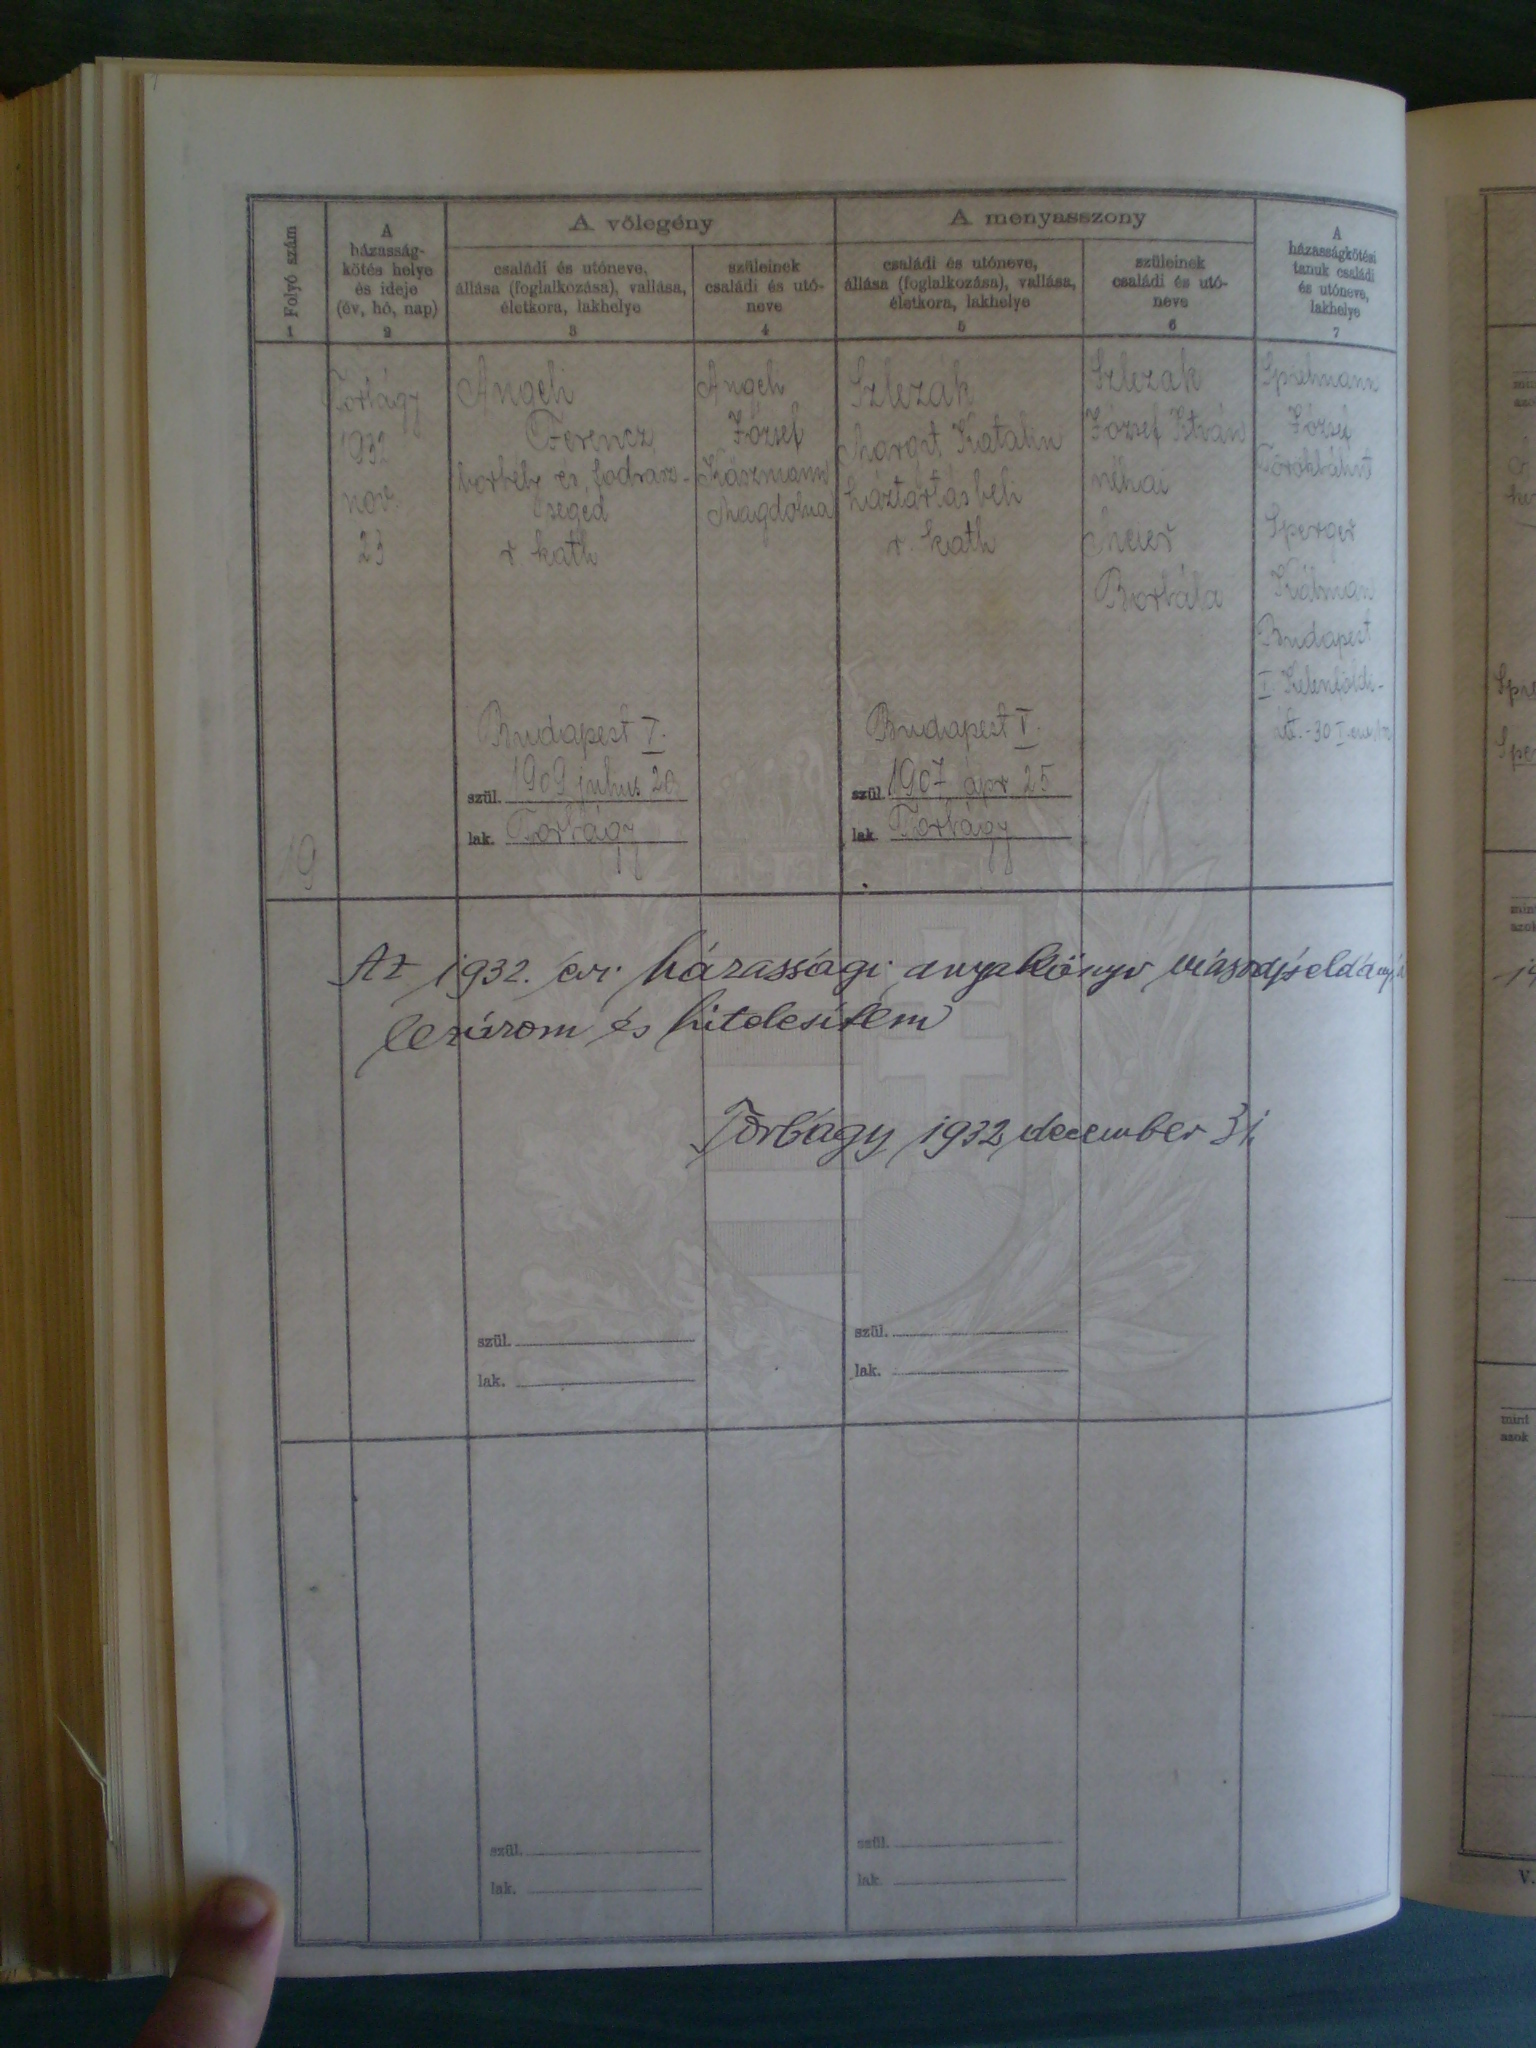 Folyó szám
1
A
házasság-
kötés helye
és ideje
(év, hó, nap)
2
A vőlegény
családi és utóneve,
állása (foglalkozása), vallása,
életkora, lakhelye
3
szüleinek
családi és utó-
neve
4
A menyasszony
családi és utóneve,
állása (foglalkozása), vallása,
életkora, lakhelye
5
szüleinek
családi és utó-
neve
6
A
házasságkötési
tanuk családi
és utóneve,
lakhelye
7
19
Torbágy
1932
nov.
23
Angeli
Ferencz
borbély és fodrász-
segéd
r kath
Budapest I.
szül. 1909 julius
lak. Torbágy
Angeli
József
Magdolna
Szlezák
Margit Katalin
háztartásbeli
r. kath
Budapest I.
szül. 1907 ápr 25
lak. Torbágy
Szlezák
József István
néhai
Meier
Borbála
Spielmann
József
Törökbálint
Sperger
Kálmán
Budapest
I. Kelenföldi-
30 I.
Az 1932. évi házassági anyakönyv másodpéldányát
lezárom és hitelesítem
Torbágy 1932 december 31
szül.
lak.
szül.
lak.
szül.
lak.
szül.
lak.
mint
azok
V.